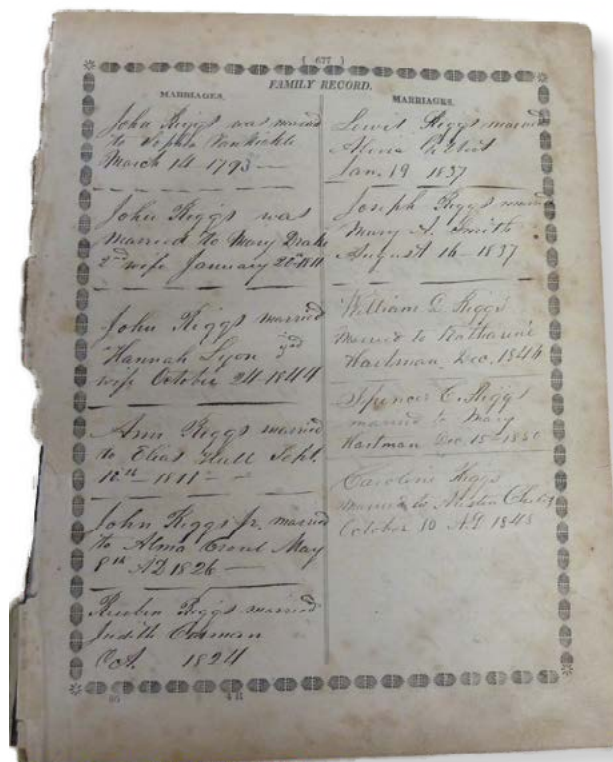 ( 677 )
FAMILY RECORD.
MARRIAGES.
John Riggs was married
to Sophia Vansickle
March 14 1793 —
John Riggs was
married to Mary Drake
2nd wife January 22 1811
John Riggs married
Hannah Lyon 3rd
wife October 24 1844
Ann Riggs married
to Elias Hull Sept.
10th 1811
John Riggs Jr. married
to Alma May
8th AD 1826 —
Reuben Riggs married
Judith
Oct. 1824
MARRIAGES.
Lewis Riggs married
Jan. 19 1837
Joseph Riggs married
Mary A. Smith
August 16 - 1837
William D. Riggs
Married to Katharine
Hartman. Dec. 1846
Spencer C. Riggs
married to Mary
Hartman Dec 15 - 1850
Caroline Riggs
married to Austin
October 30 AD 1845